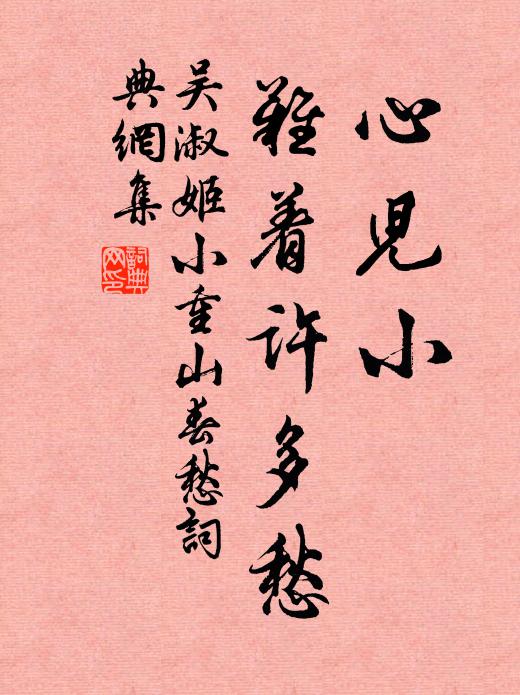 心児小
難着許多愁
吴淑姬小重山春愁詞
典網集
詞典网印